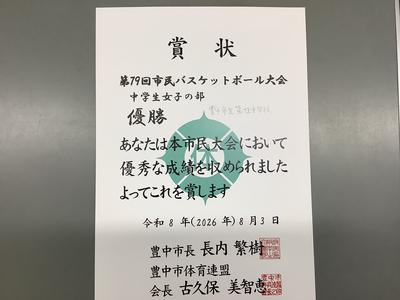 賞状
第79回市民バスケットボール大会
中学生女子の部
優勝
あなたは本市民大会において
優秀な成績を収められました
よってこれを賞します
令和8年(2026年)8月3日
豊中市長 長内 繁樹
豊中市体育連盟
会長 古久保 美智恵